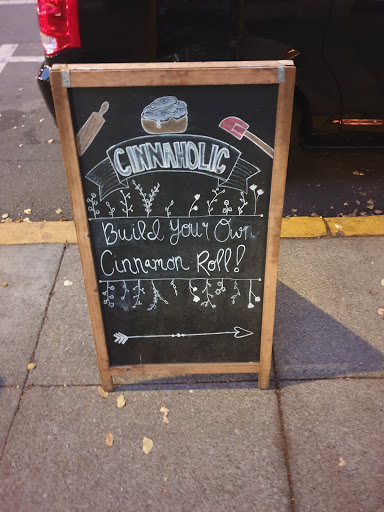 CINNAHOLIC
Build Your Own
Cinnamon Roll!